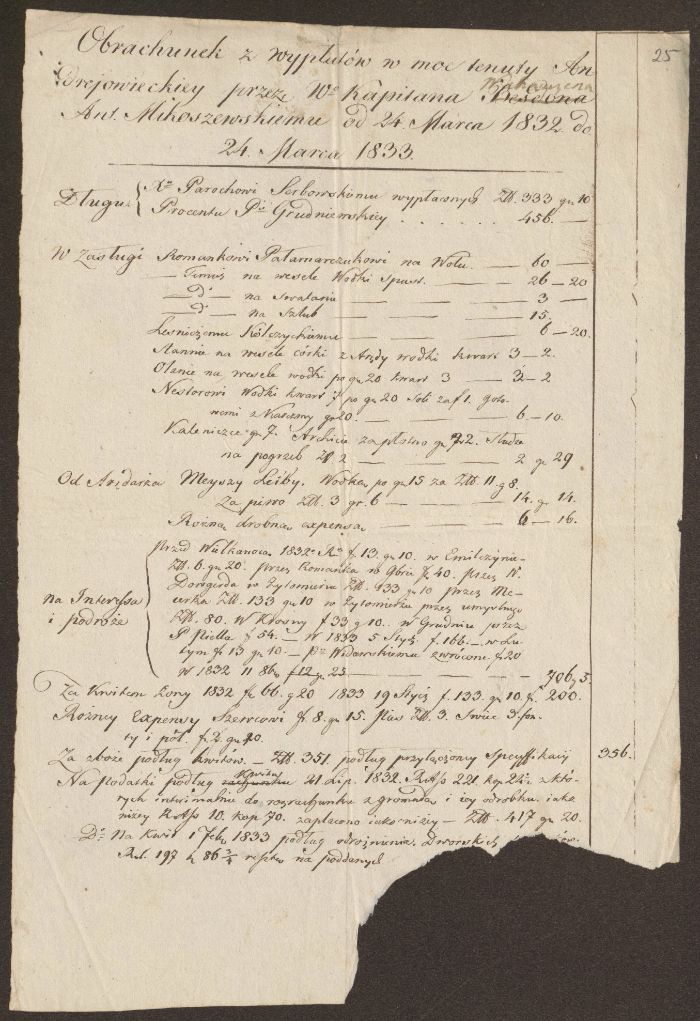 25
Obrachunek z wypłatów w moc tenuty An
drejowieckiey przez Wo Kapitana
Ant. Mikoszewskiemu od 24. Marca 1832. do
24. Marca 1833.
Długu Xu Parochowi Serbowskiemu wypłaconych Złł. 333 gr. 10
Procentu Pi Grudniewskiey . . . . . . 456. —
W Zasługi Romankowi Patarnarczukowi na Wołu. — 60 —
— Timuś na wesele Wódki — 26 — 20
— Do — na Swatanie — 3 —
— Do — na Szlub — 15.
Leśniczemu Kólczyckiemu — 6 — 20.
Stannie na wesele córki z Arędy wodki kwart 3 — 2.
Olanie na wesele wodki po gr 20 kwart 3 — 2
Nestorowi Wodki kwart po gr 20 Soli za f 1. goto-
wemi z Karczmy gr 20. — 6. — 10.
Kaleniczce gr 7. Archita zapłatno gr 2.
na pogrzeb Zł 2 — 2 gr 29
Od Arędarza Meyszy Leiby. Wodka po gr 15 za Złł 11. g 8.
Za piwo Złł. 3 gr. 6 — 14. gr 14.
Rożna drobna expensa — 6 — 16.
na Interessa i podroże
Przed Wielkanocą 1832 Ru f. 13. gr 10. w Emilczynie
Złł. 6. gr 20. przez Romańka w f. 40. przez W.
Dowgerda w Żytomierzu Złł. 133 gr 10 przez Me-
cerka Złł. 133 gr 10 w Żytomierzu przez umyślnego
Złł. 80. W f 33 g 10. w Grudniu przez
P. f 54. — W 1833 5 Stycz. f. 166 — w Lu-
tym f 13 gr 10. — Pu Widawskiemu zwrócone f. 20
W 1832 11 8bra f 12 g. 25. — 706 g 5.
Za Kwitem żony 1832 f 66. g 20 1833 19 Stycz f. 133. gr 10. f. 200.
Rożney Expensy Szewcowi f. 8. gr 15. Plus Złł. 3. Swiec 3. fon-
ty i poł. f 7. gr 20.
Za zboże podług kwitów. — Złł. 351. podług przyłączoney Specyffikaij 356.
Na Podatki podług Kwitu 21 Lip. 1832. R. Ass 221. kop 24½ z któ-
rych intwimalnie do rozrachunku z gromadą i tey odrobku. jako
niżey R Ass 10. kop 70. zapłacono jako niżey — Złł. 417 gr 20.
Do Na Kwit 1 Feb 1833 podług Dworskich
Rs. 197 k 86¾ na poddanych